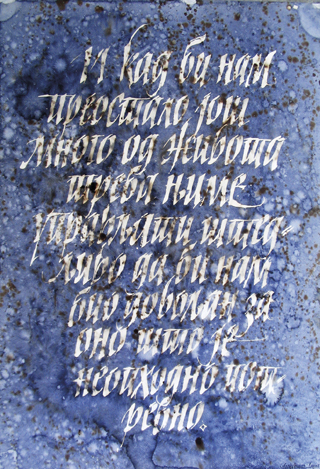 И кад би нам
преостало још
много од живота
треба њиме
управљати штед-
љиво да би нам
био довољан за
оно што је
неопходно пот-
ребно.